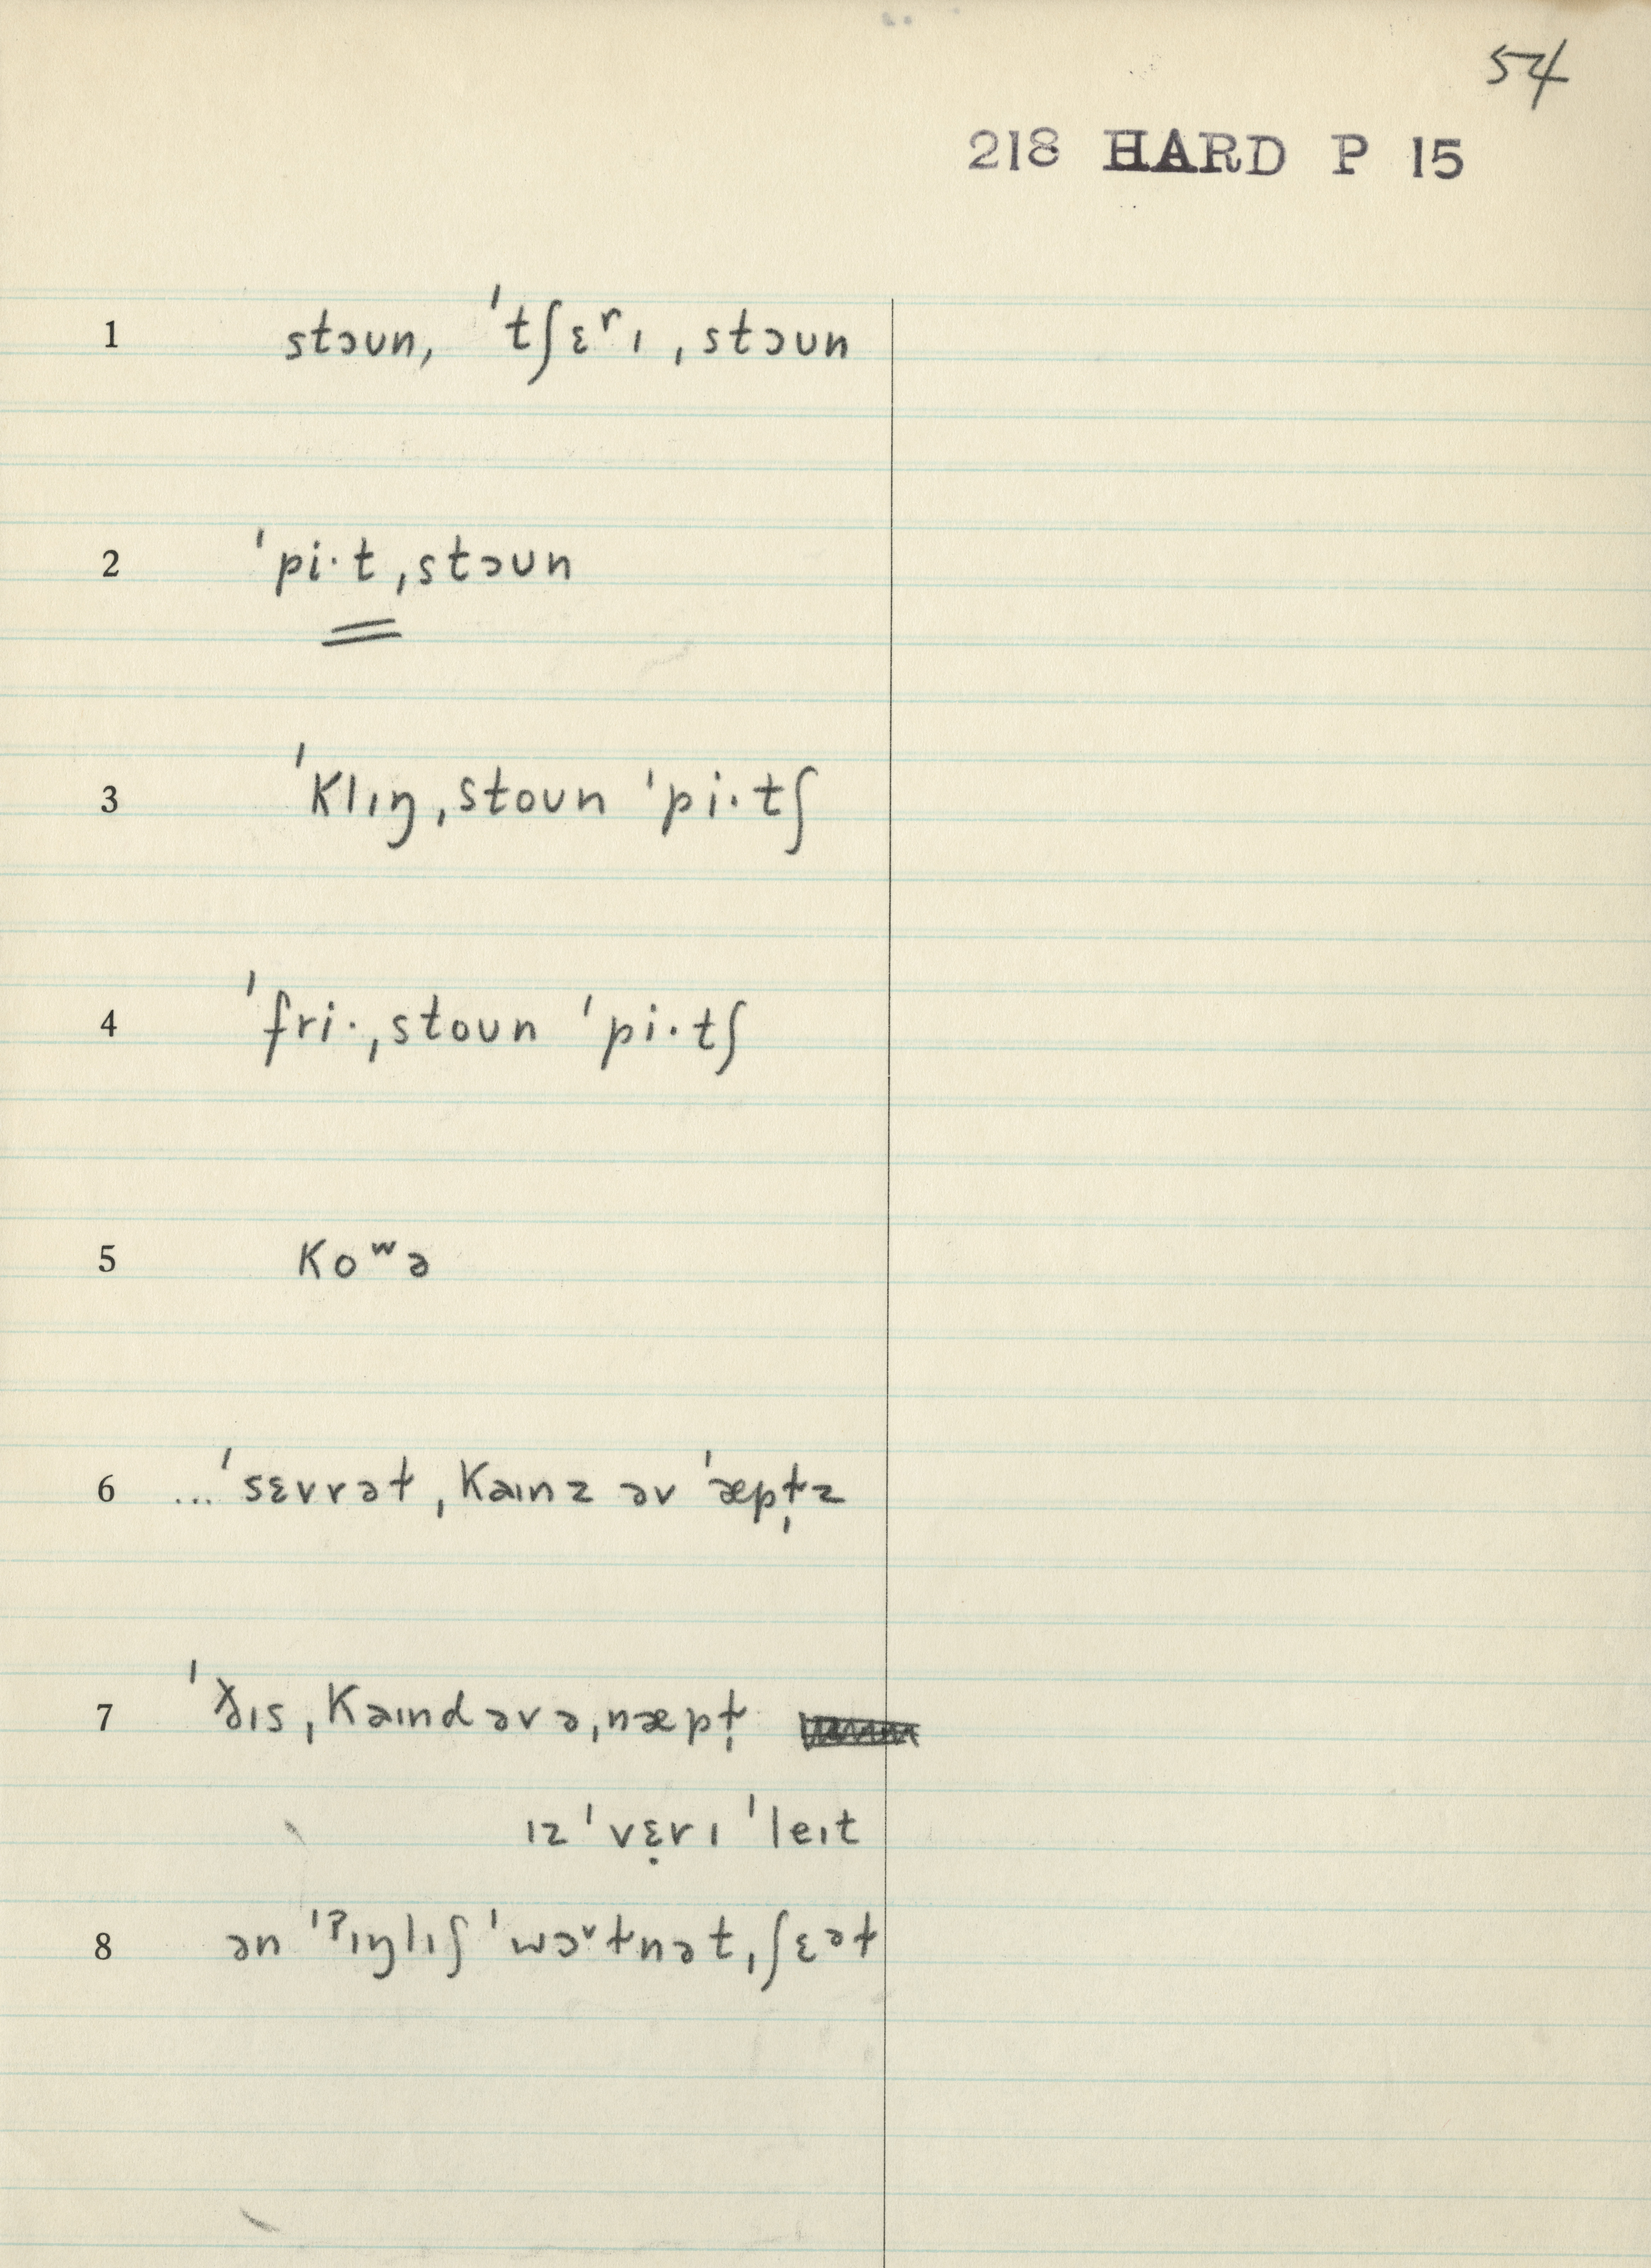 54
218 HARD P 15
1 stɔun, ˈtʃɛʳɪ ˌstɔun
2 ˈpi·t ˌstɔun
3 ˈklɪŋ ˌstoun ˈpi·tʃ
4 ˈfri· ˌstoun ˈpi·tʃ
5 koʷə
6 ... ˈsɛvrəɫ ˌkaɪnz əv ˈæpɫ̩z
7 ˈðɪs ˌkaɪnd əv ə ˌnæpɫ̩
ɪz ˈvɛ̣rɪ ˈleɪt
8 ən ˈʔɪŋlɪʃ ˈwɔᵛɫnət ˌʃɛəɫ